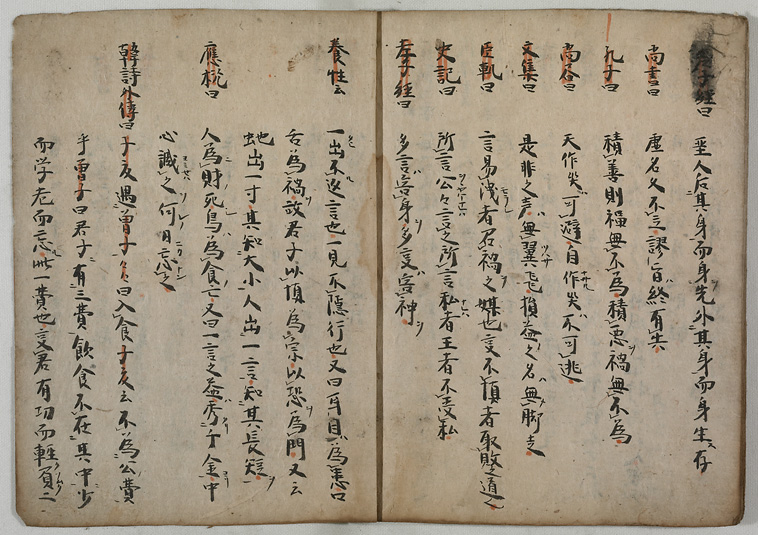 老子經曰 聖人后其身而身先外其身而身生存
尚書曰 虚名久不立謬旨終有失
孔子曰 積善則福無不為積悪禍無不為
尚谷曰 天作災可避自作災不可逃
文集曰 是非之声無翼飛損益之名無脚走
臣軌曰 言易洩者召禍之媒也事不慎者取敗之道也
史記曰 所言公公言之所言私者王者不受私
孝子經曰 多言害身多事害神
養性云 一出不返言也一見不隠行也又曰耳目為患口
舌為禍故君子以慎為宗以恐為門又云
虵出一寸其知大小人出一言知其長短
應機曰 人為財死鳥為食亡又曰一言之益秀千金中
心誠之何日忘之
韓詩外傳曰子反遇曽子々々曰入食子反云不為公費
乎曽子曰君子有三費飲食不在其中少
而学老而忘此一費也事君有功而輕負二